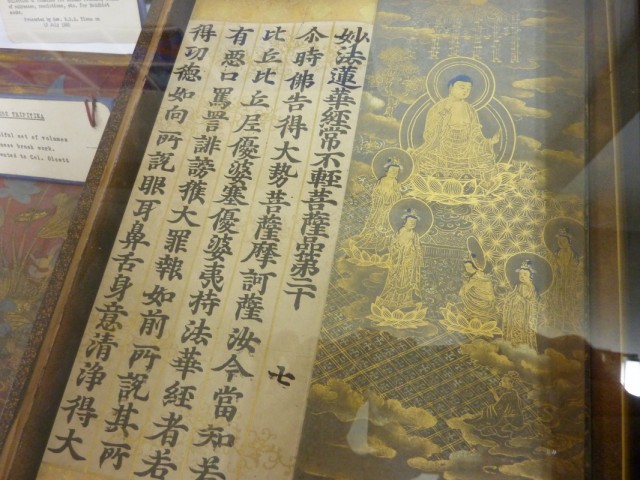 etc. for Buddhist
Presented by
July
TRIPITAKA
set of volumes
brush work.
to Col. Olcott
妙法蓮華經常不輕菩薩品第二十
七
尒時佛告得大勢菩薩摩訶薩汝今當知若
比丘比丘尼優婆塞優婆夷持法華經者若
有惡口罵詈誹謗獲大罪報如前所說其所
得功德如向所說眼耳鼻舌身意清淨得大